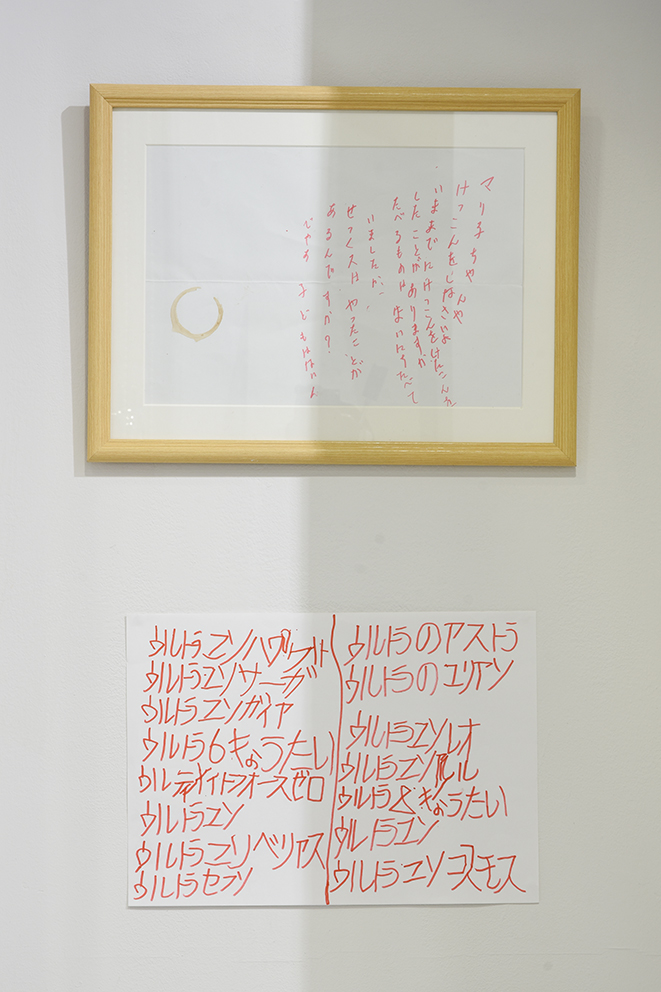 マリ子ちゃんや
けっこんをしなさいよ
いままでにけっこんをけんこんを
したことがありますか
たべるものはまいにちたべて
いましたか、
せっくスは やったことが
あるんですか?
じゃあ 子どもはないん
ウルトラ
ウルトラマンサーガ
ウルトラマンガイヤ
ウルトラ6きょうたい
ウルティメイトフォースゼロ
ウルトラマン
ウルトラマンベリヤス
ウルトラセブン
ウルトラのアストラ
ウルトラのユリアン
ウルトラマンレオ
ウルトラマン
ウルトラ8きょうたい
ウルトラマン
ウルトラマンコスモス